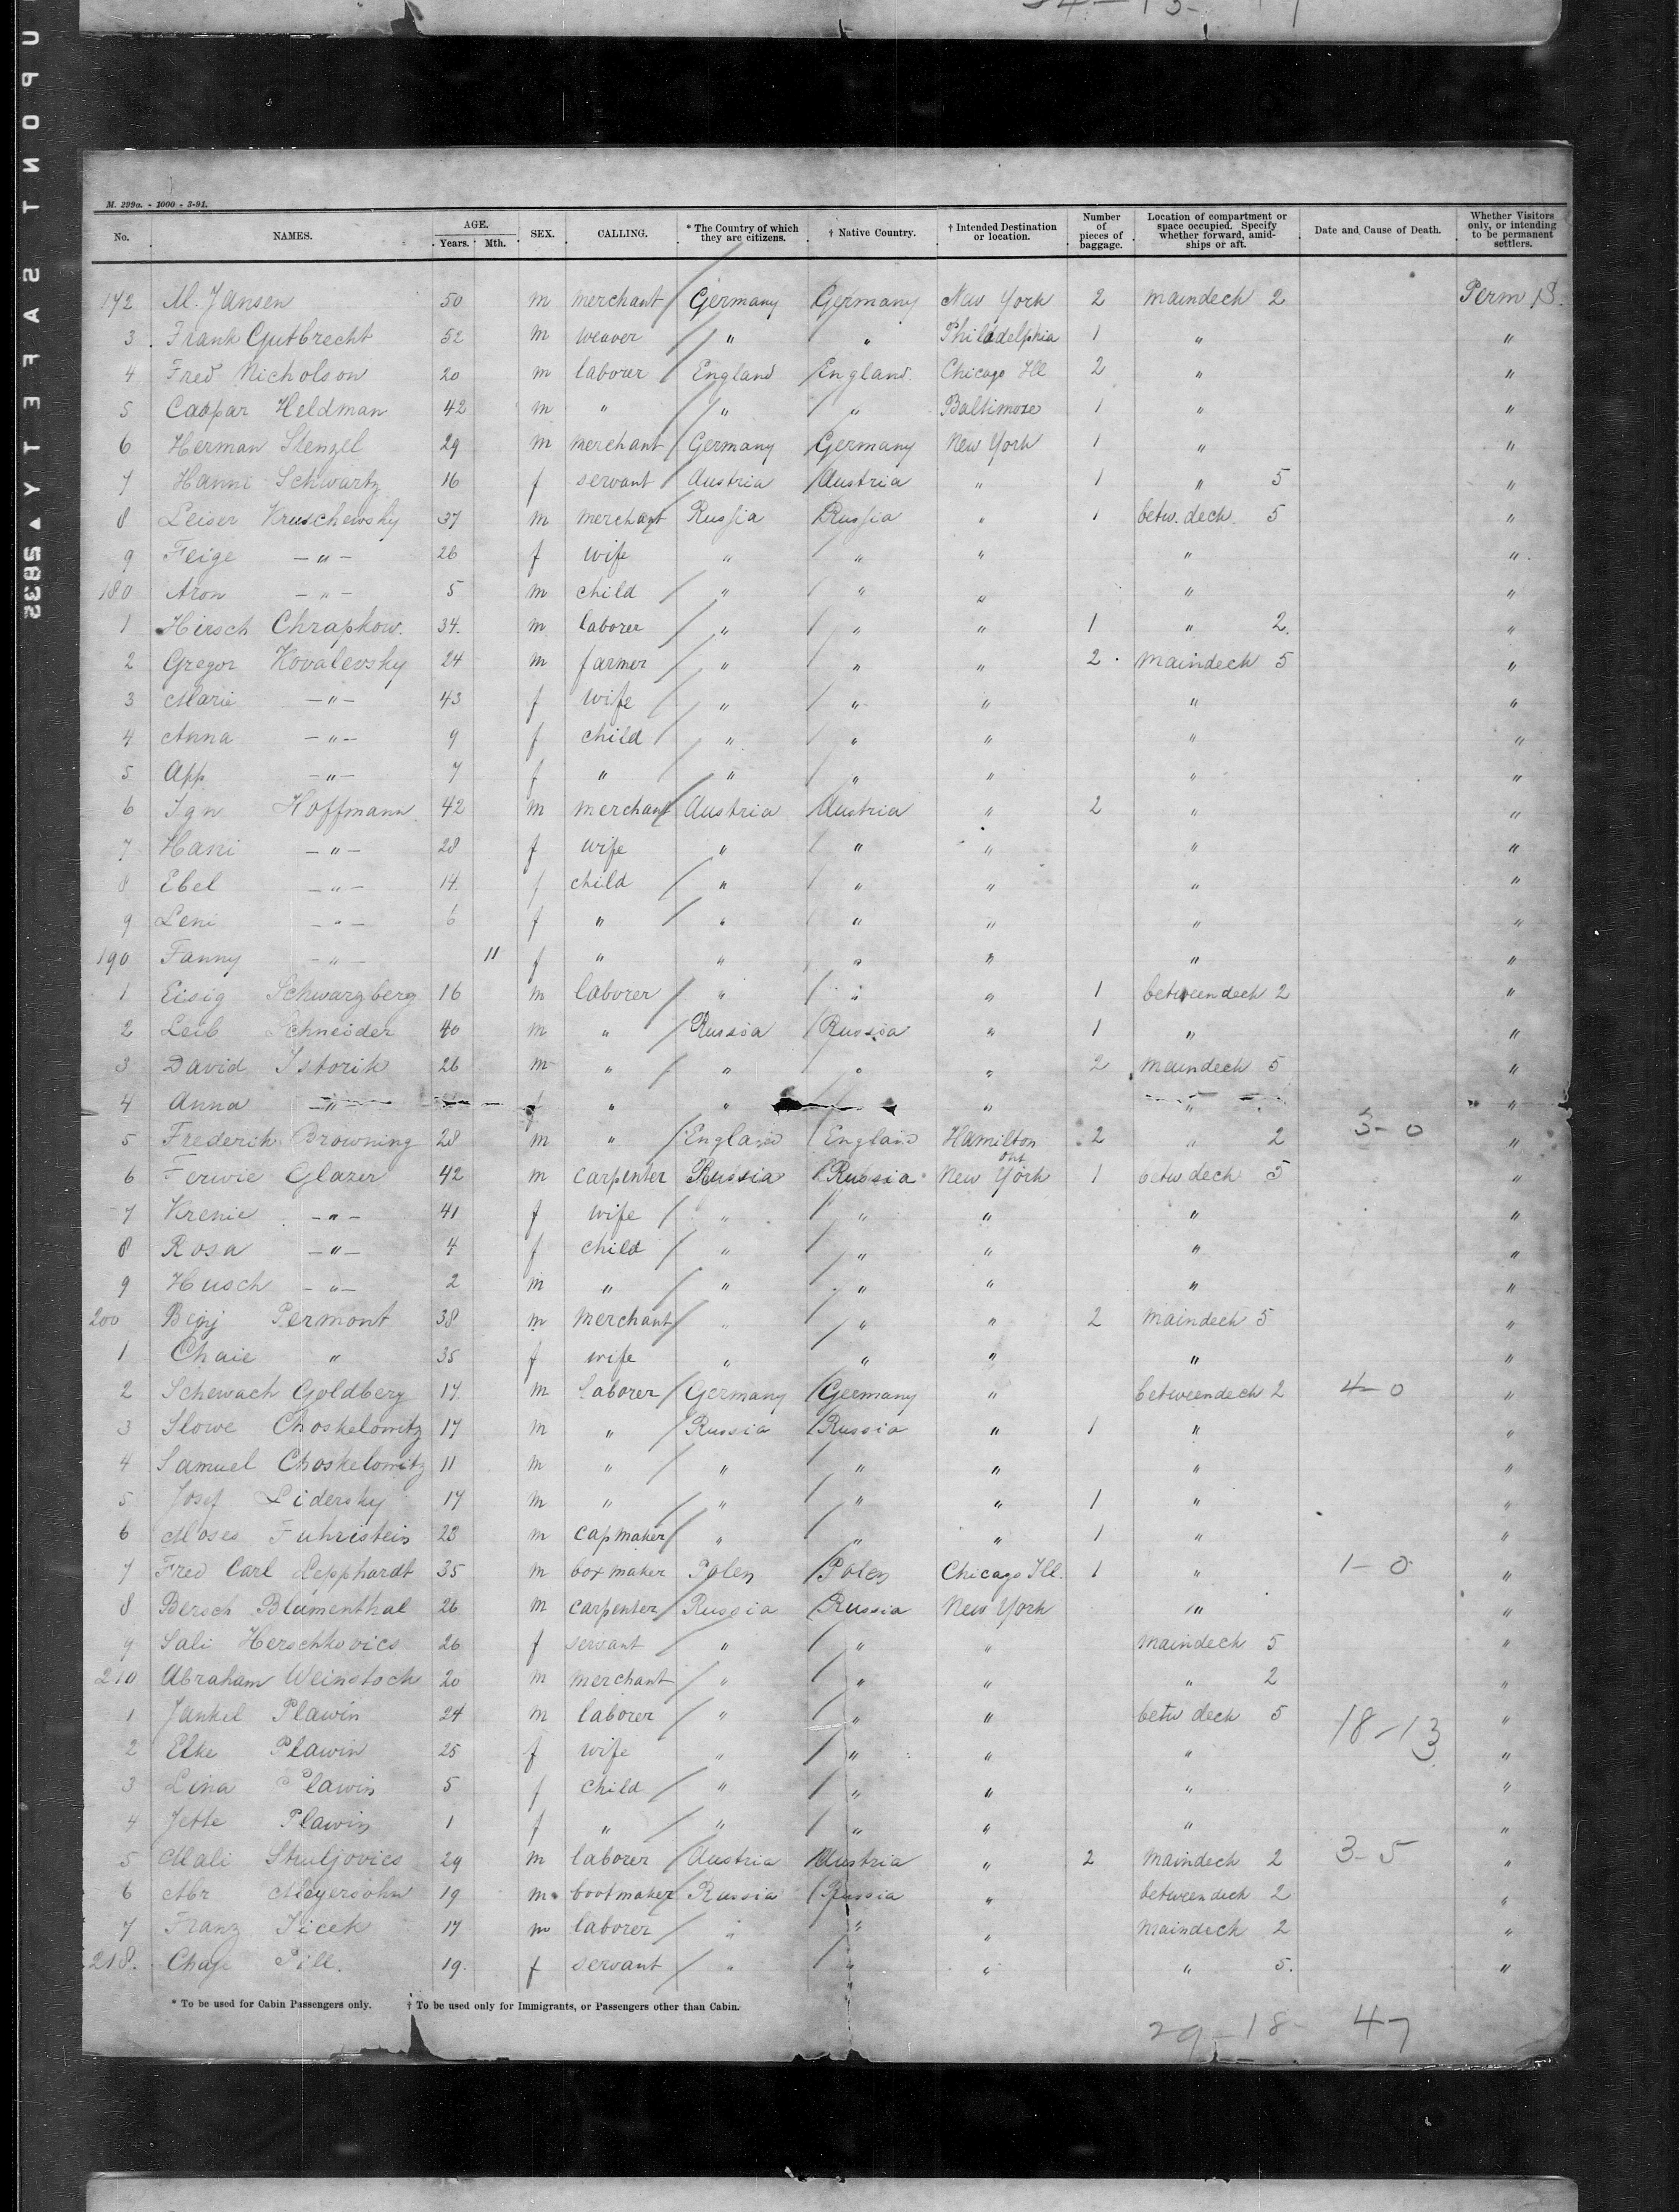 M. 299a. - 1000 - 3-91.
No. NAMES. AGE. Years. Mth. SEX. CALLING. * The Country of which they are citizens. † Native Country. † Intended Destination or location. Number of pieces of baggage. Location of compartment or space occupied. Specify whether forward, amidships or aft. Date and Cause of Death. Whether Visitors only, or intending to be permanent settlers.
172 M. Jansen 50 m merchant Germany Germany New York 2 maindeck 2 Perm S.
3 Frank Gutbrecht 52 m weaver " " Philadelphia 1 " "
4 Fred Nicholson 20 m laborer England England Chicago Ill 2 " "
5 Caspar Heldman 42 m " " " Baltimore 1 " "
6 Herman Stenzel 29 m merchant Germany Germany New York 1 " "
7 Hanni Schwartz 16 f servant Austria Austria " 1 " 5 "
8 Leiser Kruschewsky 37 m merchant Russia Russia " 1 betw. deck 5 "
9 Feige - " - 26 f wife " " " " "
180 Aron - " - 5 m child " " " " "
1 Hirsch Chrapkow. 34. m laborer " " " 1 " 2. "
2 Gregor Kovalevsky 24 m farmer " " " 2 maindeck 5 "
3 Marie - " - 43 f wife " " " " "
4 Anna - " - 9 f child " " " " "
5 App - " - 7 f " " " " " "
6 Ign Hoffmann 42 m merchant Austria Austria " 2 " "
7 Hani - " - 28 f wife " " " " "
8 Ebel - " - 14. f child " " " " "
9 Leni - " - 6 f " " " " " "
190 Fanny - " - 11 f " " " " " "
1 Eisig Schwarzberg 16 m laborer " " " 1 betweendeck 2 "
2 Leib Schneider 40 m " Russia Russia " 1 " "
3 David Istorik 26 m " " " " 2 maindeck 5 "
4 Anna - " - f " " " " "
5 Frederik Browning 28 m " England England Hamilton Ont 2 " 2 3-0 "
6 Ferwie Glazer 42 m carpenter Russia Russia New York 1 betw deck 5 "
7 Krenie - " - 41 f wife " " " " "
8 Rosa - " - 4 f child " " " " "
9 Husch - " - 2 m " " " " " "
200 Benj Permont 38 m merchant " " " 2 maindeck 5 "
1 Chaie " 35 f wife " " " " "
2 Schewach Goldberg 17. m laborer Germany Germany " betweendeck 2 4-0 "
3 Slowe Choskelowitz 17 m " Russia Russia " 1 " "
4 Samuel Choskelowitz 11 m " " " " " "
5 Josef Lidersky 17 m " " " " 1 " "
6 Moses Fuhristein 23 m capmaker " " " 1 " "
7 Fred Carl Lepphardt 35 m box maker Polen Polen Chicago Ill. 1 " 1-0 "
8 Bersch Blumenthal 26 m carpenter Russia Russia New York " "
9 Sali Herschkovics 26 f servant " " " maindeck 5 "
210 Abraham Weinstock 20 m merchant " " " " 2 "
1 Jankel Plawin 24 m laborer " " " betw deck 5 18-13 "
2 Elke Plawin 25 f wife " " " " "
3 Lina Plawin 5 f child " " " " "
4 Jette Plawin 1 f " " " " " "
5 Mali Struljovics 29 m laborer Austria Austria " 2 maindeck 2 3-5 "
6 Abr Meyersohn 19 m bootmaker Russia Russia " betweendeck 2 "
7 Franz Jicek 17 m laborer " " " maindeck 2 "
218. Chaje Pill. 19. f servant " " " " 5. "
* To be used for Cabin Passengers only. † To be used only for Immigrants, or Passengers other than Cabin.
29-18- 47